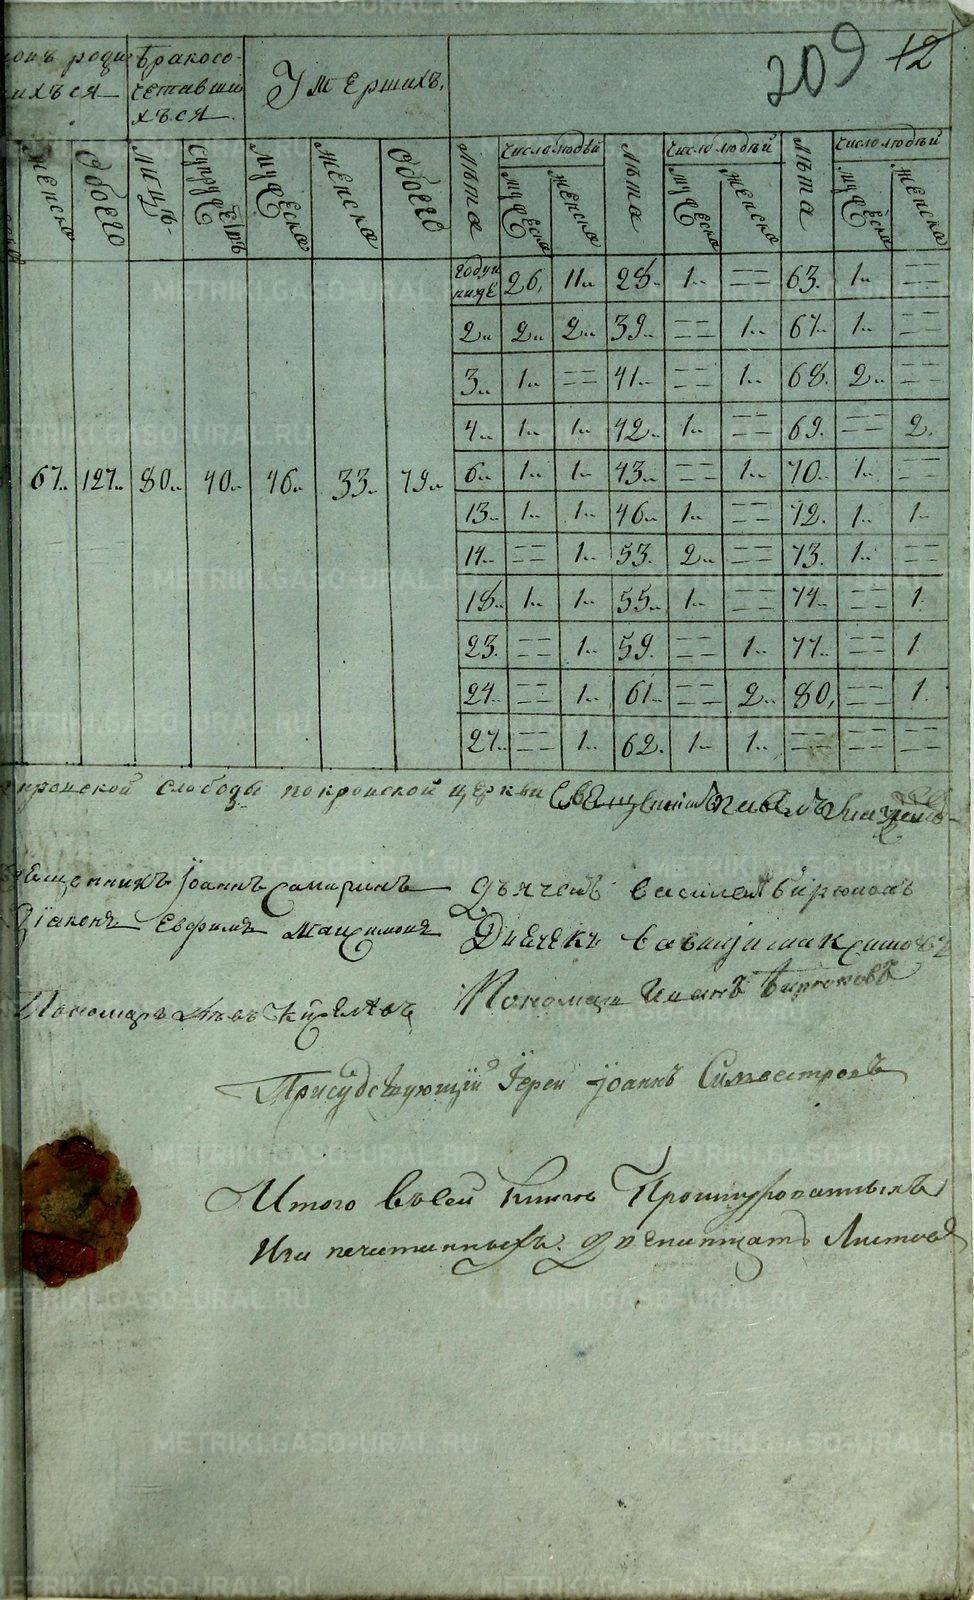 209 12
родив
шихъся
бракосо-
четавши
хъся
Умершихъ.
женска
обоего
лицъ
супружествъ
мужеска
женска
обоего
лѣта
число людей
мужеска
женска
лѣта
число людей
мужеска
женска
лѣта
число людей
мужеска
женска
67.. 127.. 80.. 40.. 46.. 33.. 79..
году и ниже 26. 11.. 28.. 1.. == 63. 1.. ==
2.. 2.. 2.. 39.. == 1.. 67.. 1.. ==
3.. 1.. == 41.. == 1.. 68. 2.. ==
4.. 1.. 1.. 42.. 1.. == 69. == 2.
6.. 1.. 1.. 43.. == 1.. 70.. 1.. ==
13.. 1.. 1.. 46.. 1.. == 72. 1.. 1..
14.. == 1.. 53. 2.. == 73. 1.. ==
18.. 1.. 1.. 55.. 1.. == 74.. == 1.
23. == 1.. 59. == 1.. 77.. == 1
24.. == 1.. 61.. == 2.. 80. == 1.
27.. == 1.. 62. 1.. 1.. == == ==
слободы покровской церкви
Іоаннъ Самаринъ дьячекъ василей бирюковъ
Діаконъ Евфимъ Максимовъ Дьячекъ
Пономарь Пономарь Иванъ Бирюковъ
Присудствующій Іерей Іоаннъ Симвестровъ
Итого въ сей книге Прошнурованныхъ
И за печатанныхъ двенатцать Листовъ
METRIKI.GASO-URAL.RU